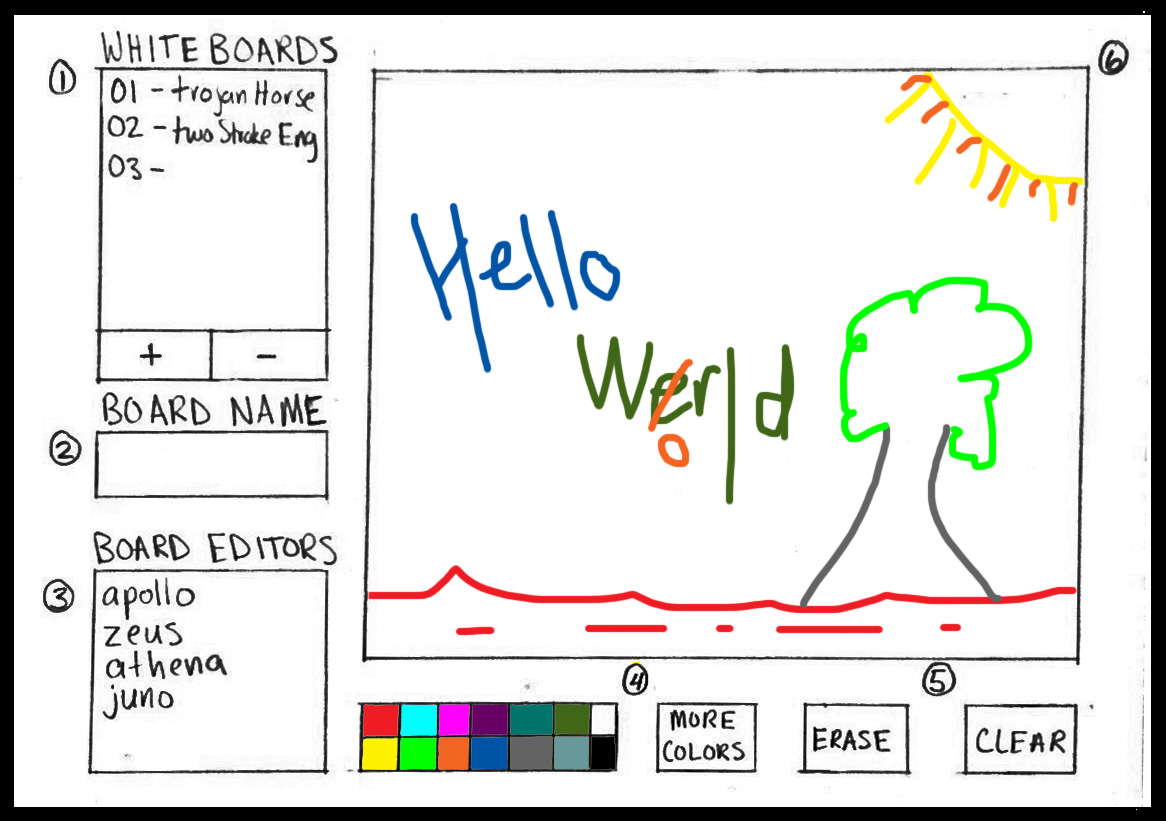 WHITE BOARDS
①
01 - trojan Horse
02 - two Stroke Eng
03 -
+
-
BOARD NAME
②
BOARD EDITORS
③
apollo
zeus
athena
juno
⑥
Hello
Werld
o
④
⑤
MORE
COLORS
ERASE
CLEAR